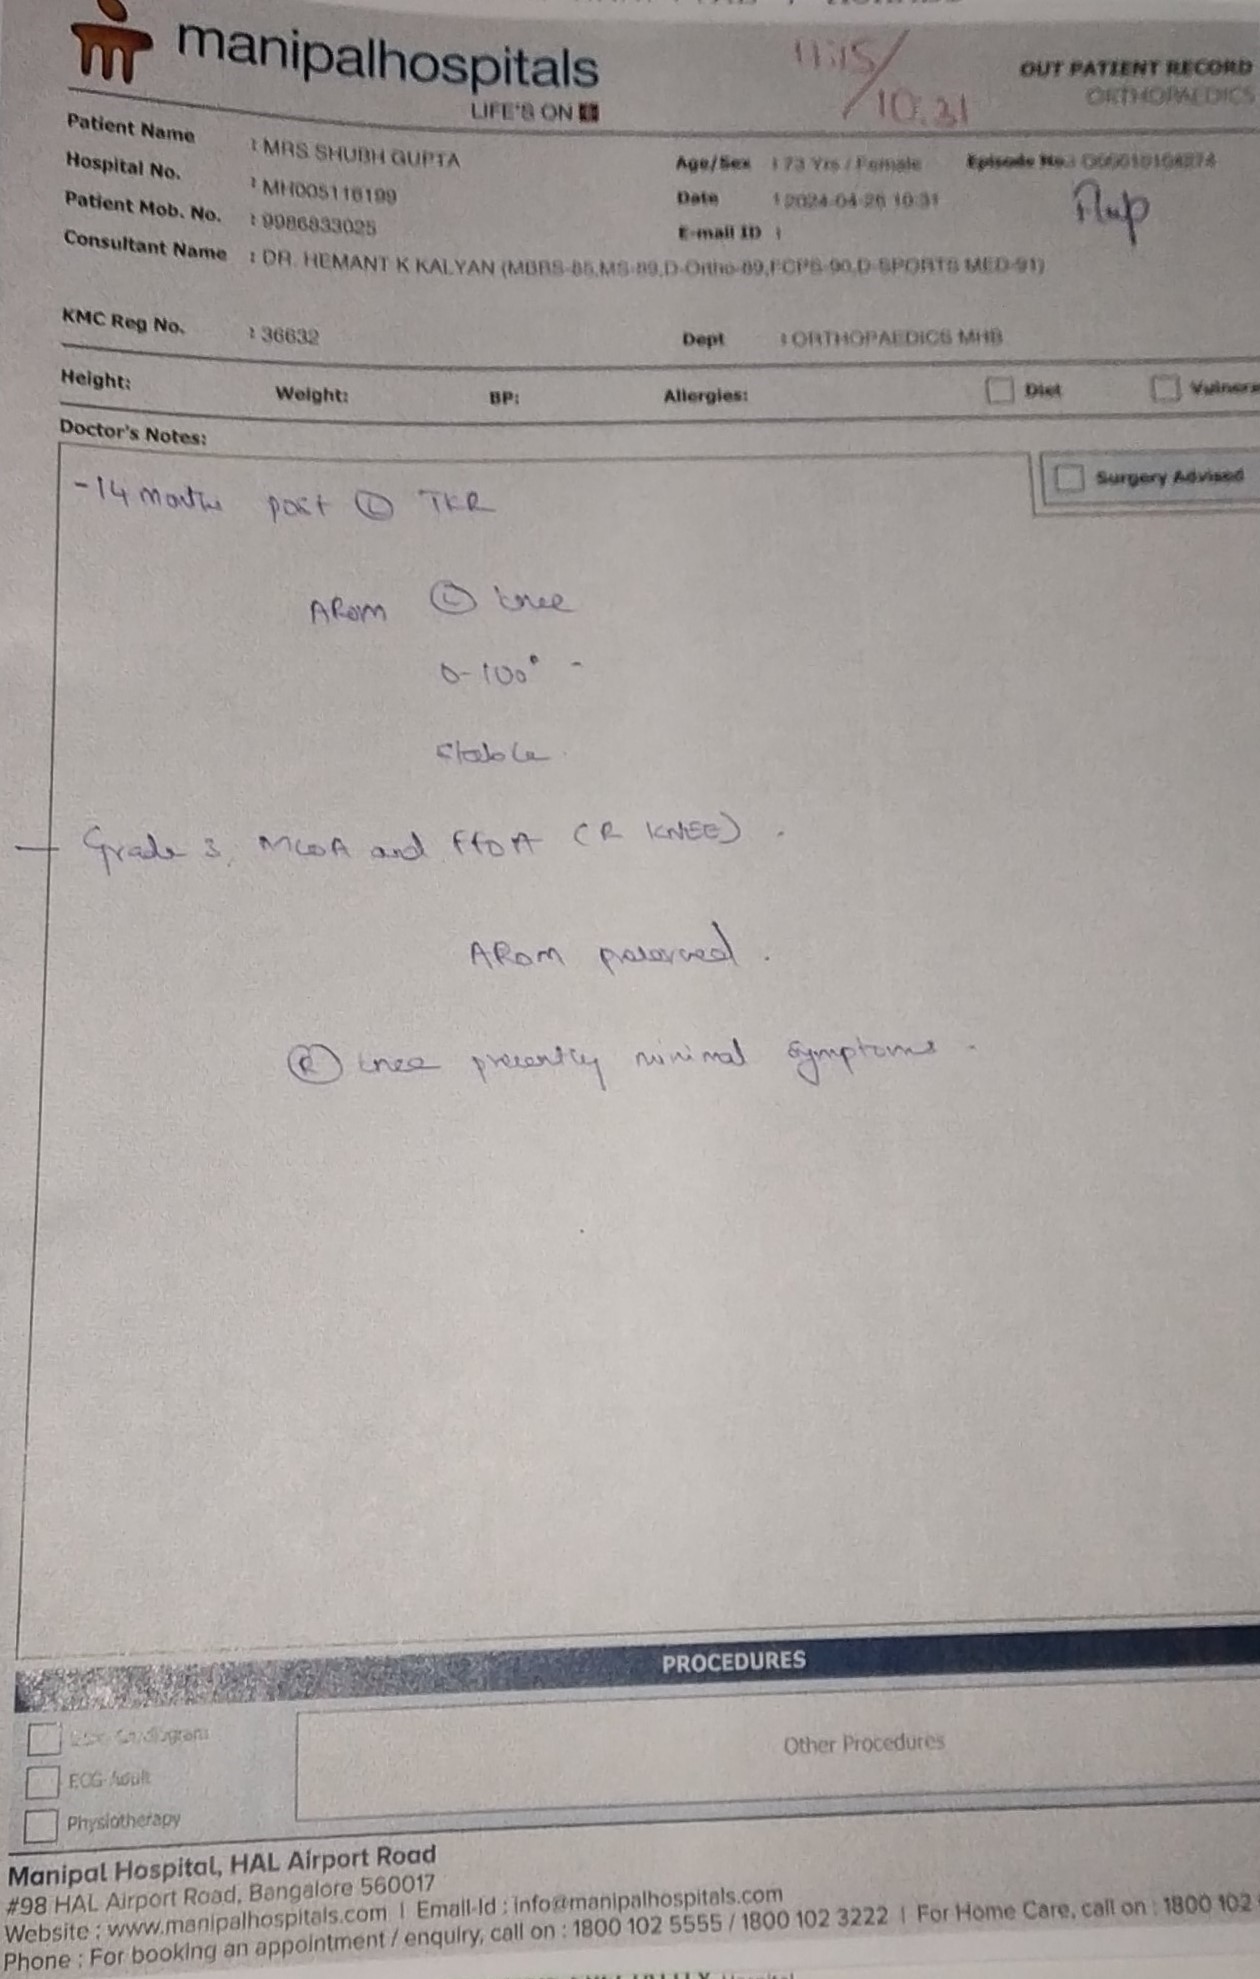 manipalhospitals
LIFE'S ON
11:15/
10.31
OUT PATIENT RECORD
ORTHOPAEDICS
Patient Name : MRS SHUBH GUPTA
Age/Sex : 73 Yrs / Female Episode No.:
Hospital No. : MH005116199
Date : 2024-04-26 10:31
Patient Mob. No. : 9986833025
E-mail ID :
Consultant Name : DR. HEMANT K KALYAN (MBBS-85,MS-89,D-Ortho-89,FCPS-90,D-SPORTS MED-91)
KMC Reg No. : 36632 Dept : ORTHOPAEDICS MHB
Height: Weight: BP: Allergies: Diet
Doctor's Notes:
Surgery Advised
- 14 months post (L) TKR
AROM (L) knee
0-100° -
stable.
Grade 3, MCOA and PFOA (R KNEE).
AROM preserved.
(R) knee presently minimal symptoms.
PROCEDURES
ECG-Adult
Physiotherapy
Other Procedures
Manipal Hospital, HAL Airport Road
#98 HAL Airport Road, Bangalore 560017
Website : www.manipalhospitals.com | Email-Id : info@manipalhospitals.com
Phone : For booking an appointment / enquiry, call on : 1800 102 5555 / 1800 102 3222 | For Home Care, call on : 1800 102